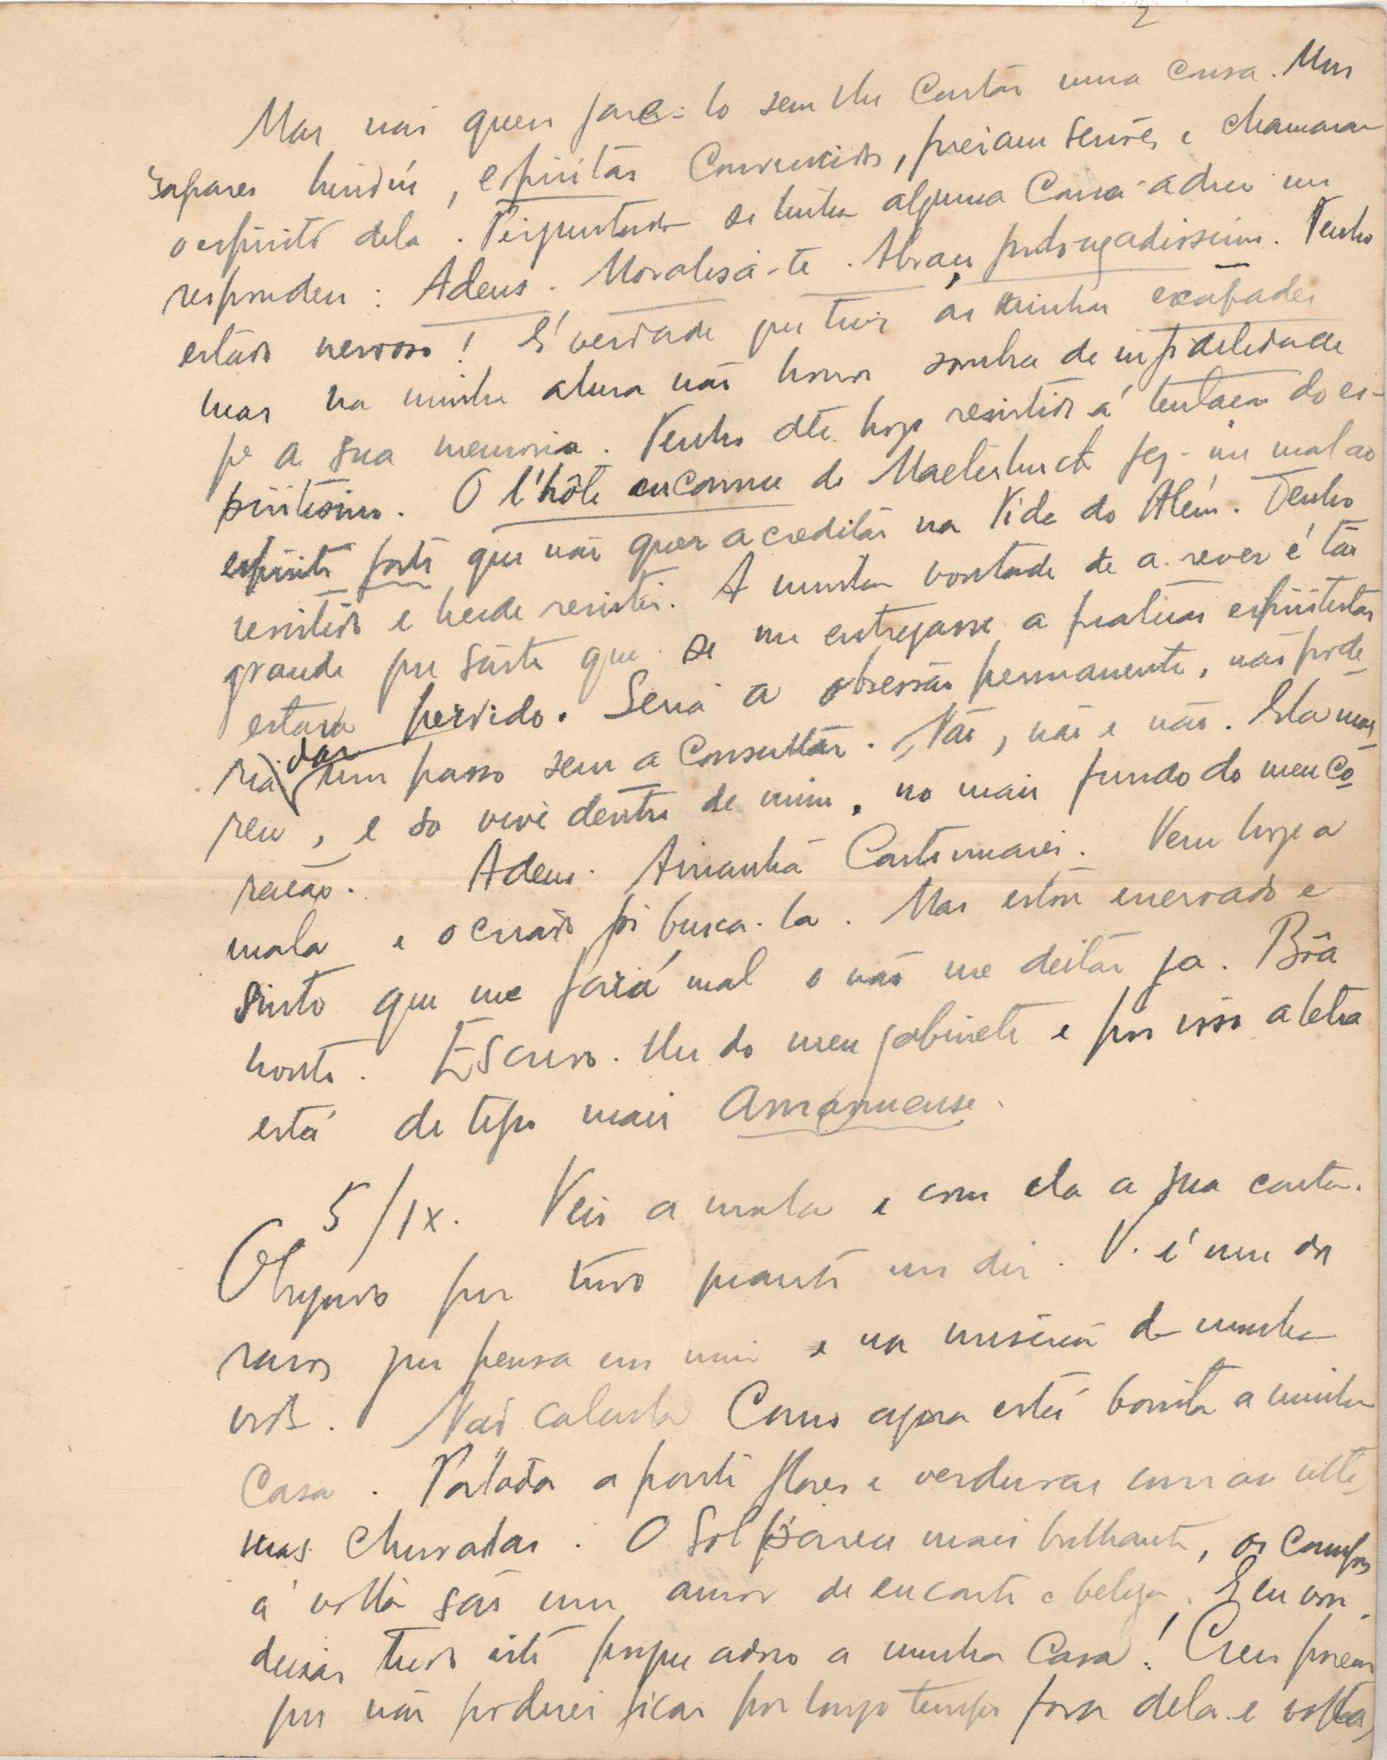 2
Mas não quero faze-lo sem lhe contar uma cousa. Uns
rapazes hindús, espiritas convencidos, fizeram sessões e chamaram
o espirito dela. Perguntado se tinha alguma cousa a dizer
respondeu: Adeus. Moralisa-te. Abraço prolongadissimo. Tenho
estado nervoso! É verdade que tive as minhas escapadas
mas na minha alma não houve sombra de infidelidade
a sua memoria. Tenho até hoje resistido á tentação do es-
piritismo. O l'hôte inconnu de Maeterlinck fez-me mal ao
espirito forte que não quer acreditar na Vida do Além. Tenho
resistido e heide resistir. A minha vontade de a rever é tão
grande que sinto que se me entregasse a praticas espiritistas
estava perdido. Seria a obsessão permanente, não pode-
ria dar um passo sem a consultar. Não, não e não. Ela mor-
reu, e só vive dentro de mim, no mais fundo do meu co-
ração. Adeus. Amanhã continuarei. Vem hoje a
mala e o criado foi busca-la. Mas estou enervado e
sinto que me fará mal o não me deitar ja. Bôa
noite. Escrevo-lhe do meu gabinete e por isso a letra
está de tipo mais amanuense.
5/IX. Veio a mala e com ela a sua carta.
Obrigado por tudo quanto me diz. V. é um dos
raros que pensa em mim e na miseria da minha
vida. Não calcula como agora está bonita a minha
casa. Portada a fonte flores e verduras com as ulti-
mas chuvadas. O Sol parece mais brilhante, os campos
á volta são um amor de encanto e beleza. E eu vou
deixar tudo isto porque adoro a minha casa! Creio porem
que não poderei ficar por longo tempo fora dela e volta,